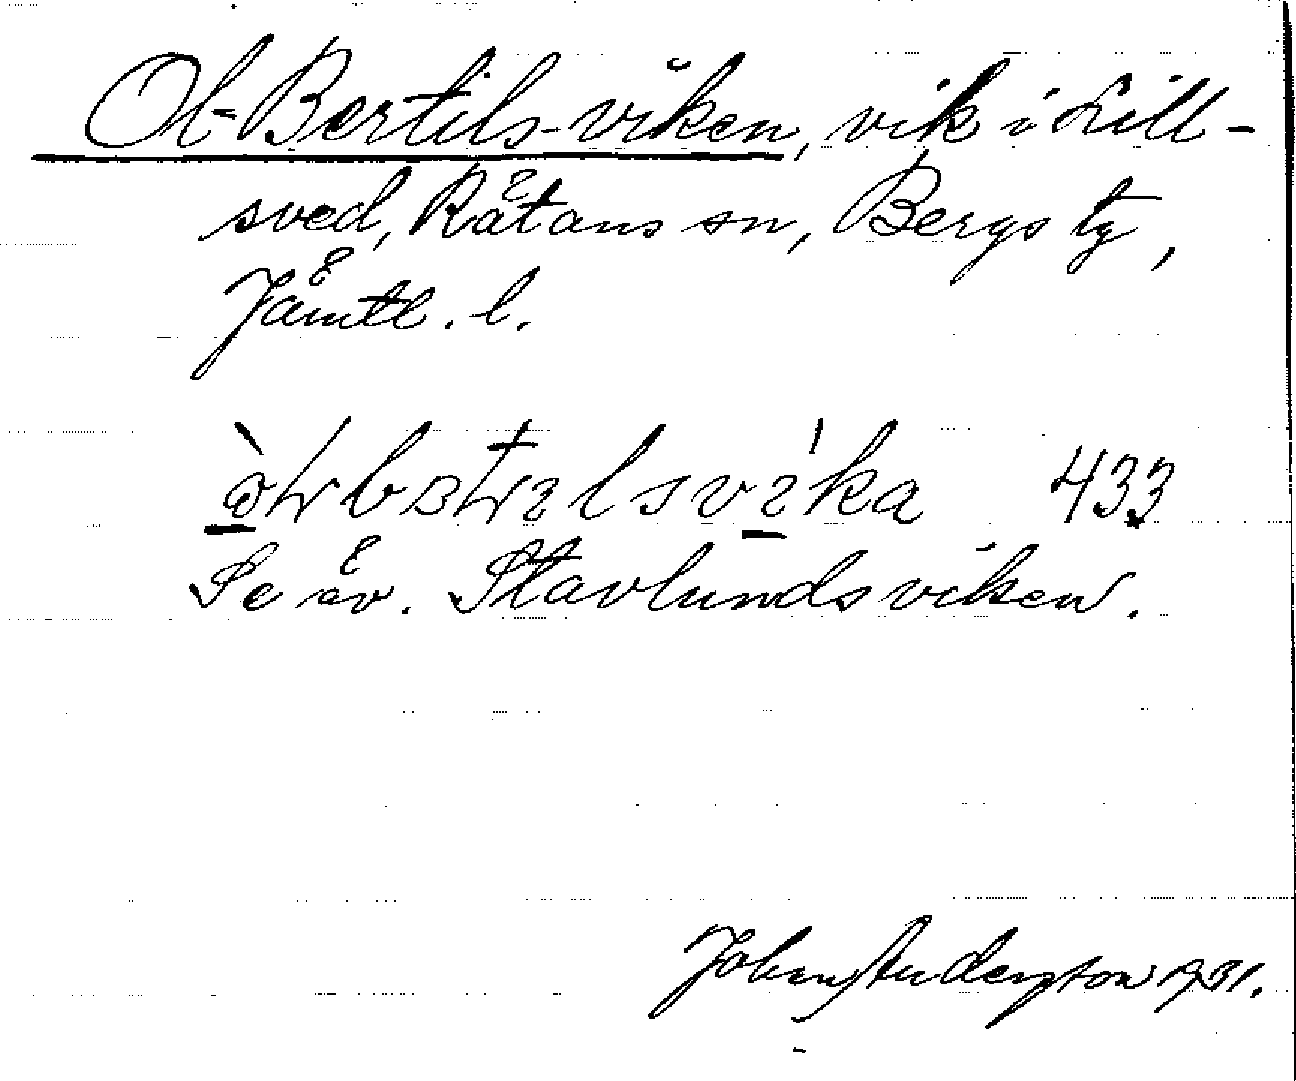 Ol-Bertils-viken, vik i Lill-
sved, Rätans sn, Bergs tg,
Jämtl. l.
433
Se äv. Stavlundsviken.
John Andersson 1931.